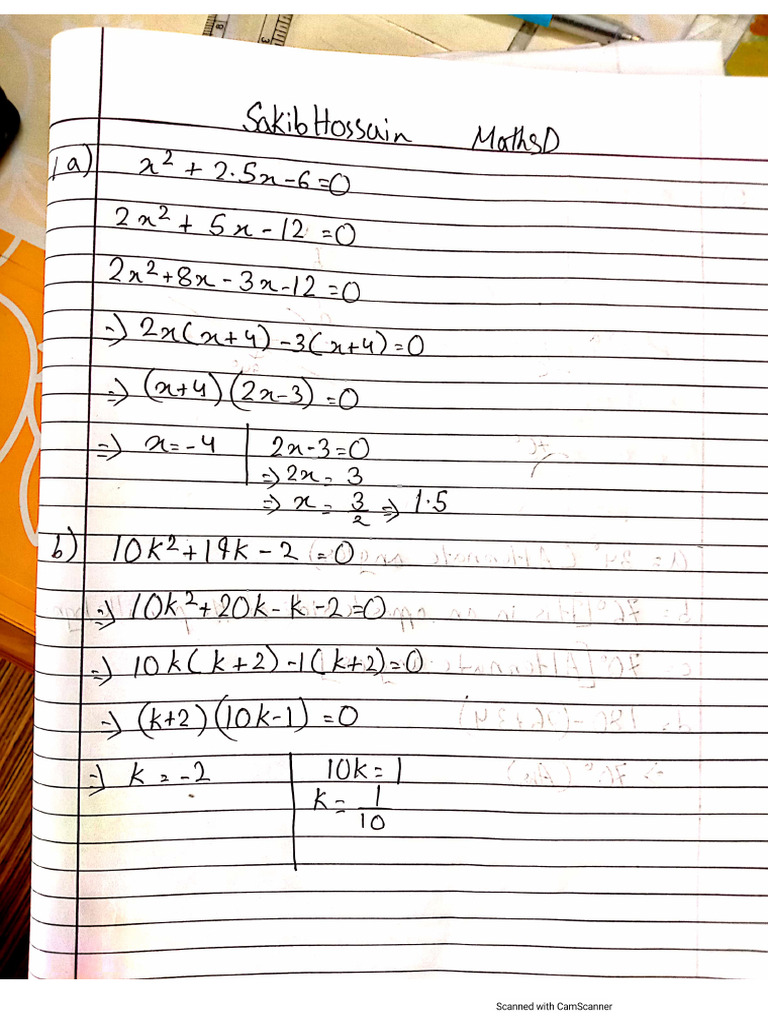 Sakib Hossain Maths D
1a) x² + 2.5x - 6 = 0
2x² + 5x - 12 = 0
2x² + 8x - 3x - 12 = 0
⇒ 2x(x+4) - 3(x+4) = 0
⇒ (x+4)(2x-3) = 0
⇒ x = -4 | 2x - 3 = 0
⇒ 2x = 3
⇒ x = 3/2 ⇒ 1.5
b) 10k² + 19k - 2 = 0
⇒ 10k² + 20k - k - 2 = 0
⇒ 10k(k+2) - 1(k+2) = 0
⇒ (k+2)(10k-1) = 0
⇒ k = -2 | 10k = 1
k = 1/10
Scanned with CamScanner